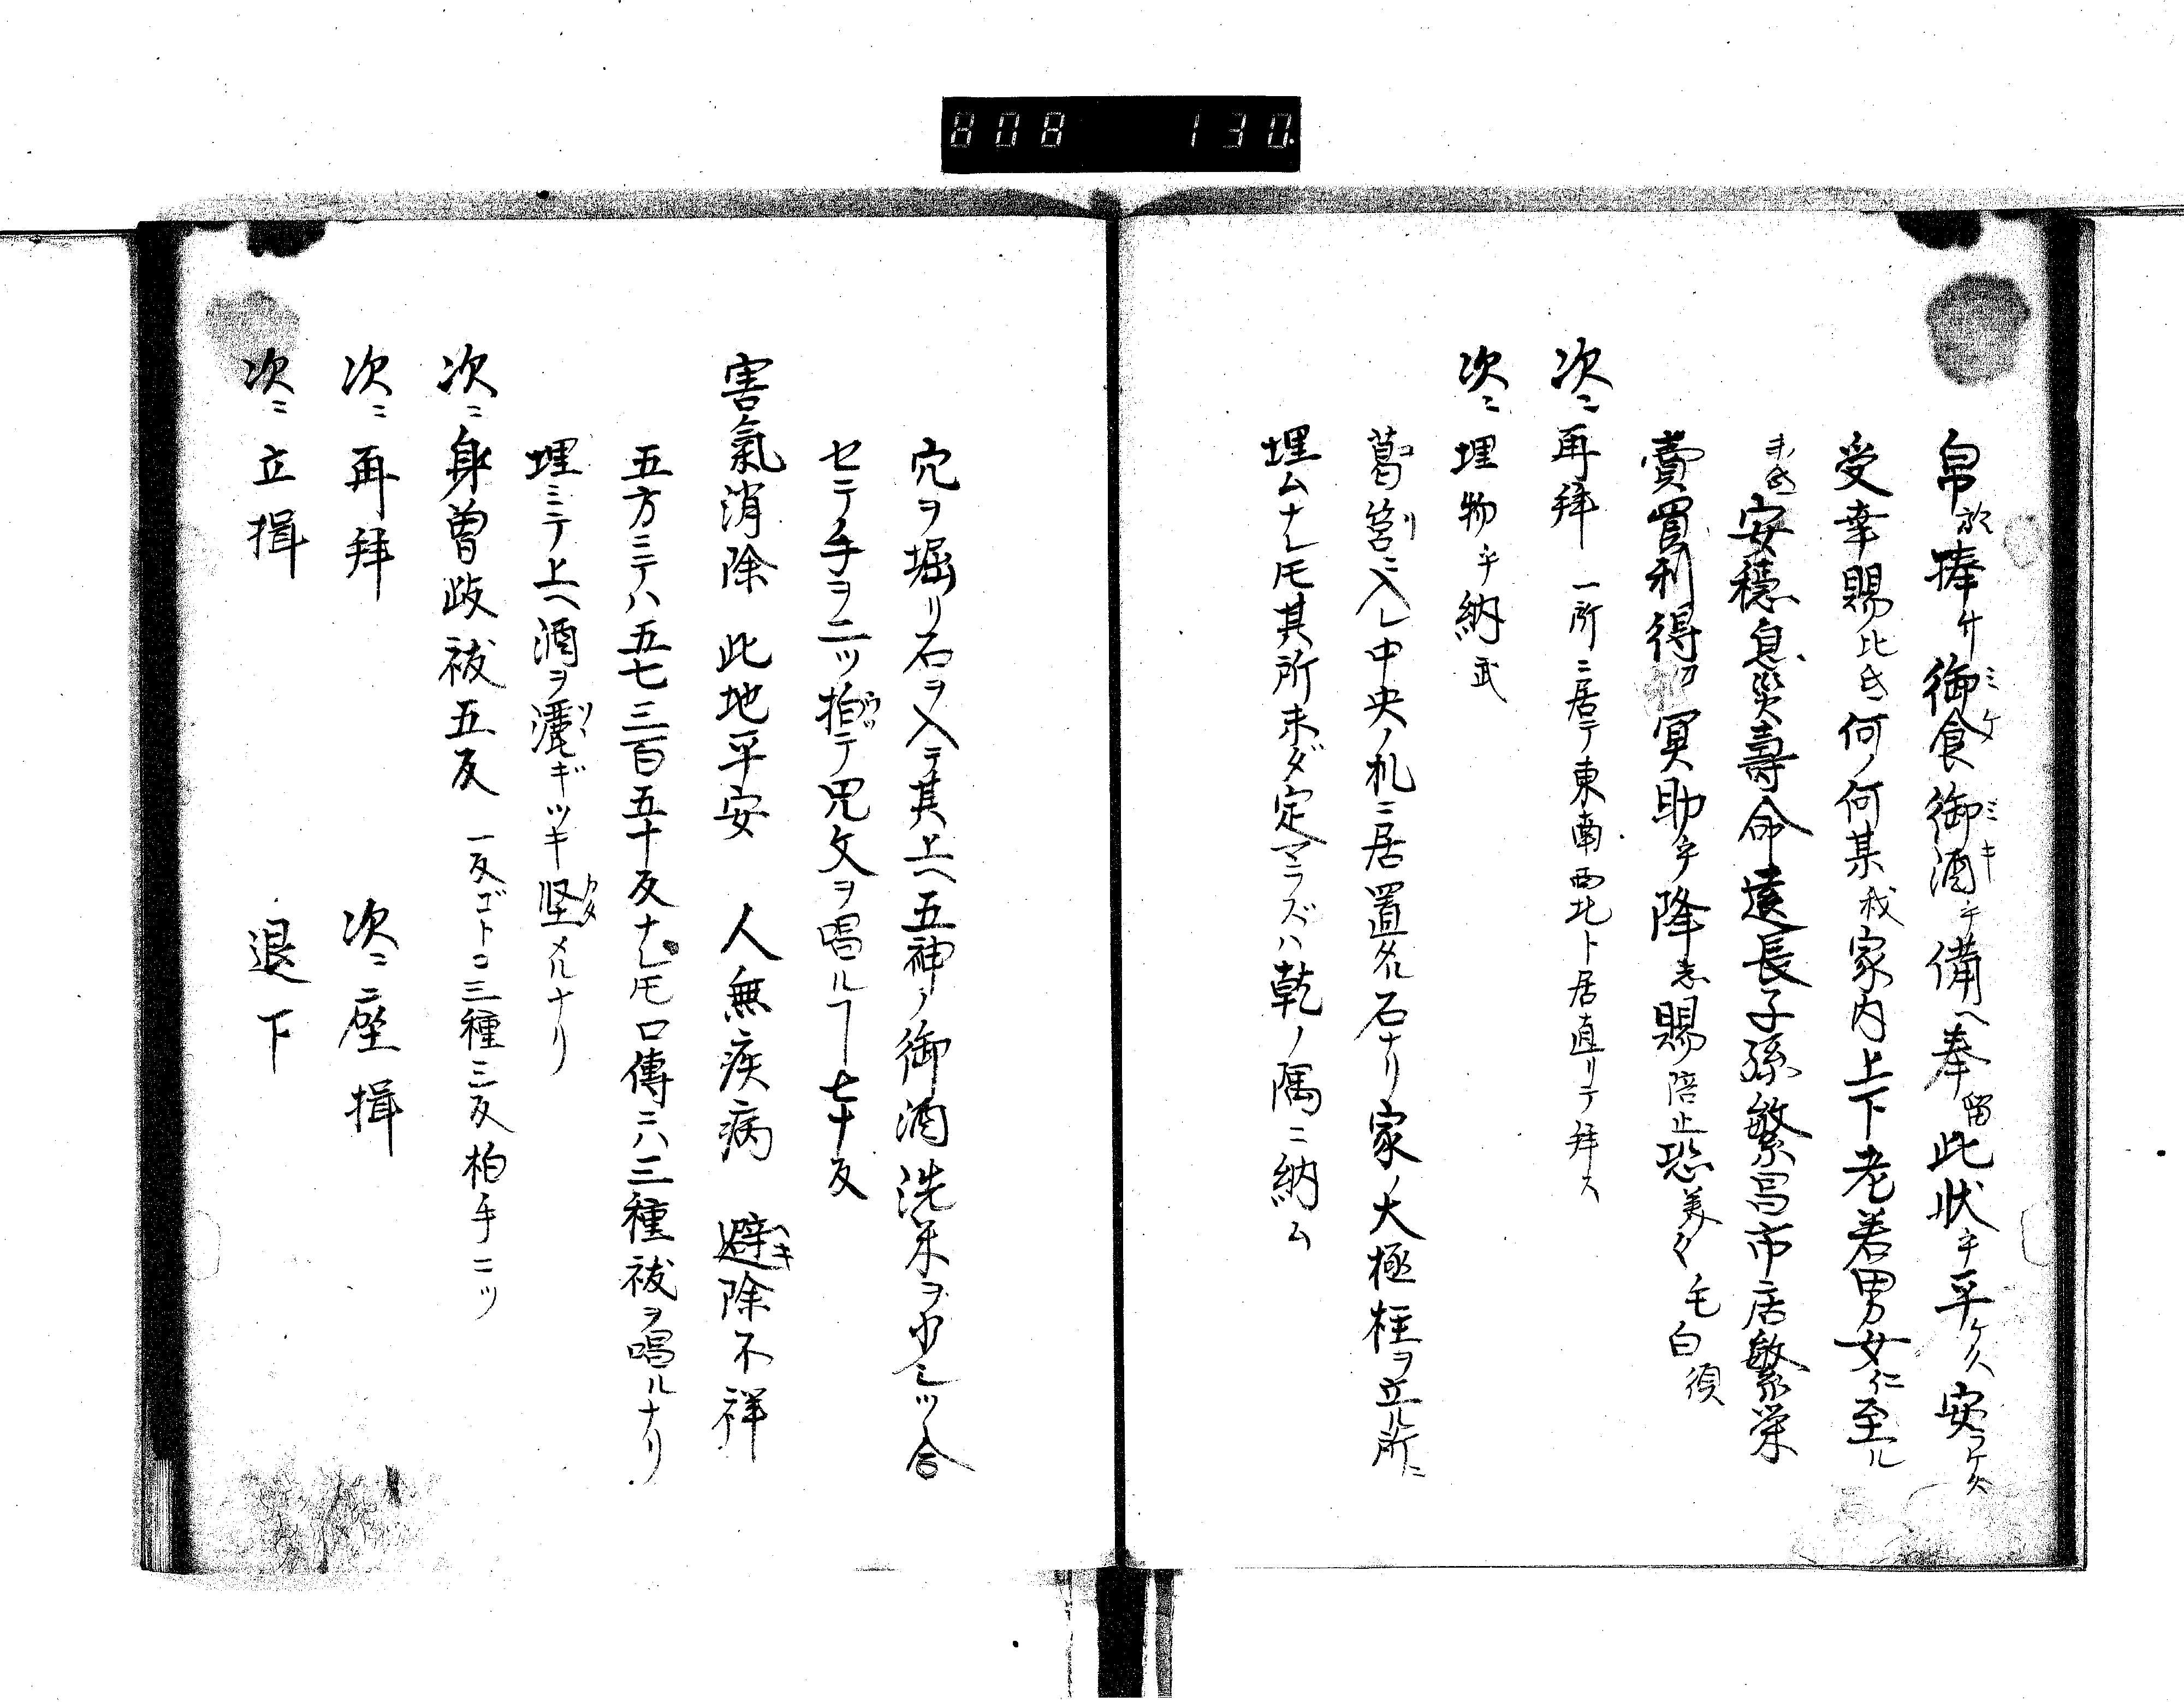 808 130
帛於捧ケ御食御酒乎備ヘ奉留此状乎平ケク安ラケク
受幸賜比氐何ノ何某我家内上下老若男女仁至ル
末氐安穏息災壽命遠長子孫繁昌市店繁栄
賣買利得ノ冥助乎降志賜陪止恐美々毛白須
次ニ再拜 一所ニ居テ東南西北ト居直リテ拜ス
次ニ埋物乎納武
葛筥ニ入レ中央ノ札ニ居置タル石ナリ家ノ大極柱ヲ立ル所ニ
埋ムナレ𪜈其所未ダ定マラズハ乾ノ隅ニ納ム
穴ヲ堀リ石ヲ入テ其上ヘ五神ノ御酒洗米ヲ少シツヽ合
セテ手ヲ二ツ拍テ咒文ヲ唱ルヿ七十反
害氣消除 此地平安 人無疾病 避除不祥
五方ニテハ五七三百五十反ナレ𪜈口傳ニハ三種祓ヲ唱ルナリ
埋ミテ上ヘ酒ヲ灑ギツキ堅メルナリ
次ニ身曽岐祓五反 一反ゴトニ三種三反柏手二ツ
次ニ再拜 次ニ座揖
次ニ立揖 退下